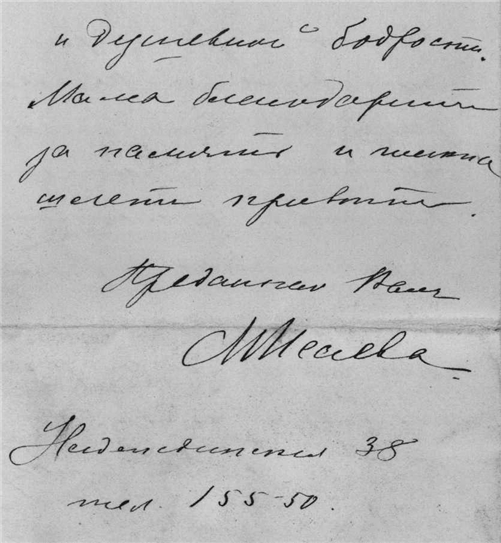 и душевной бодрости.
Мама благодаритъ
за память и
шлетъ приветъ.
Преданная Вамъ
Надеждинская 38
тел. 155-50.